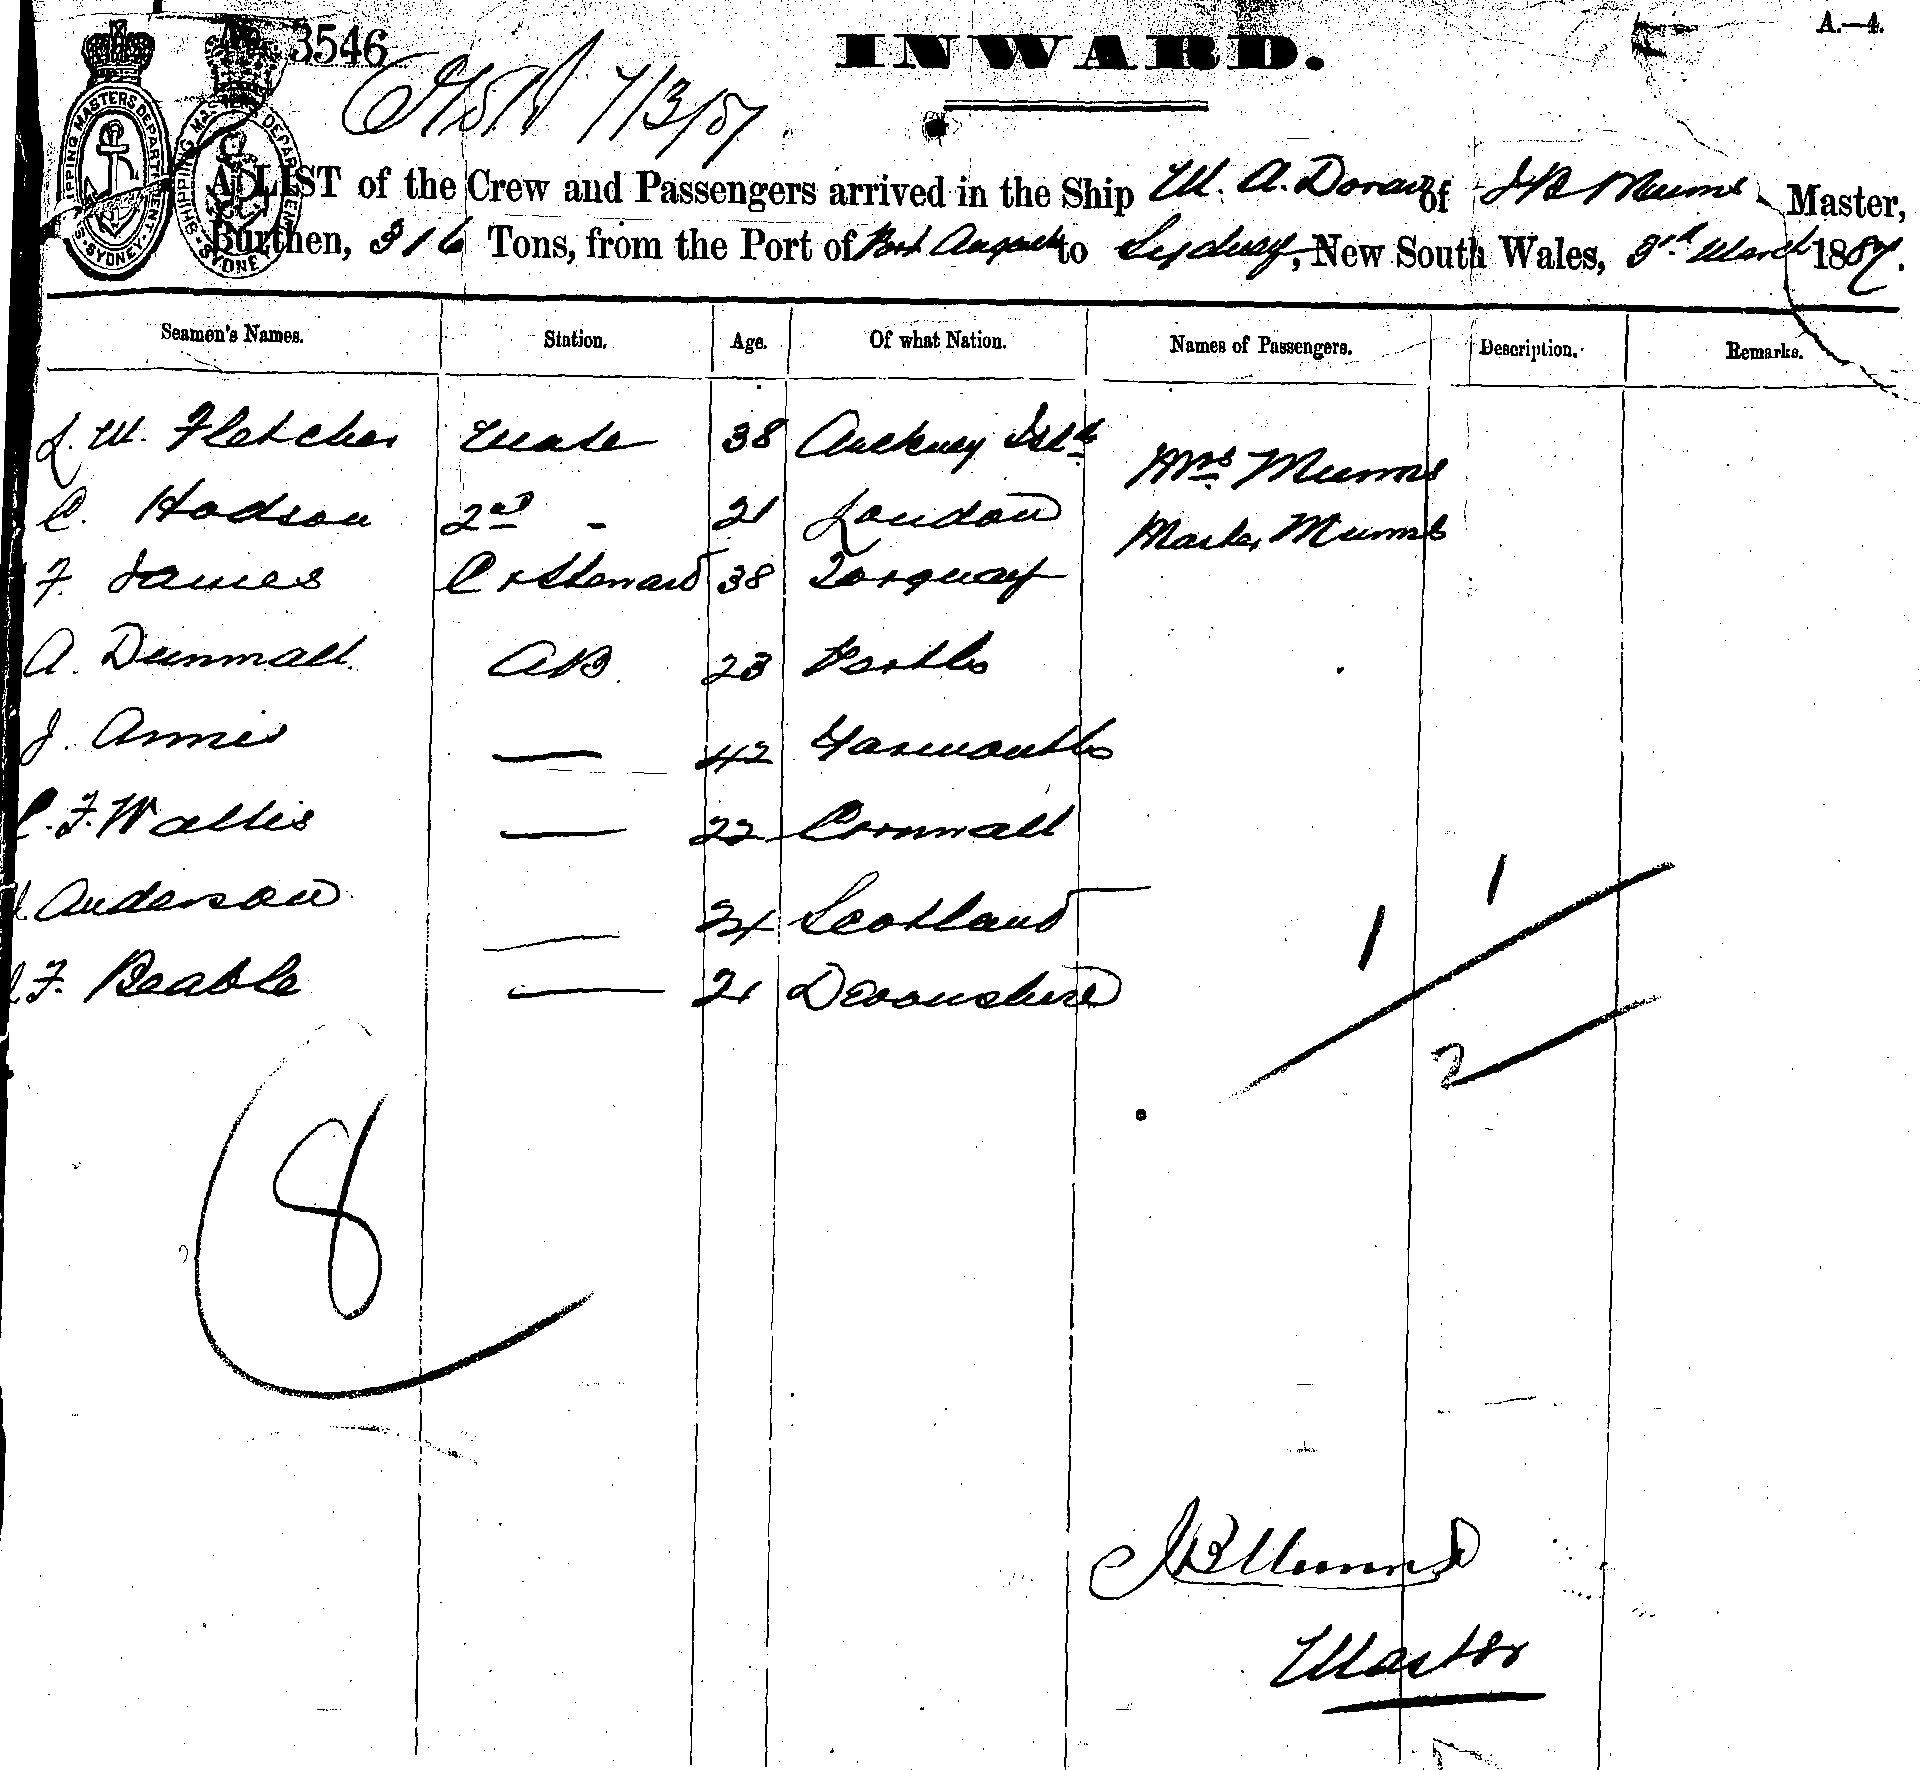 3546
INWARD.
A.—4.
7/3/87
A LIST of the Crew and Passengers arrived in the Ship W. A. Doran of J B Mumme Master,
Burthen, 316 Tons, from the Port of Port Augusta to Sydney, New South Wales, 3rd March 1887.
Seamen's Names. Station. Age. Of what Nation. Names of Passengers. Description. Remarks.
W. Fletcher Mate 38 Isld
Mrs Mumme
C. Hodson 2nd - 21 London
Master Mumme
F. James C & Steward 38 Torquay
A. Dunmall AB 23 Perth
J. Annis — 42 Yarmouth
C. F. Wallis — 22 Cornwall
Anderson — Scotland
F. Beable — 21 Devonshire
1 1
2
8
JB Mumme
Master